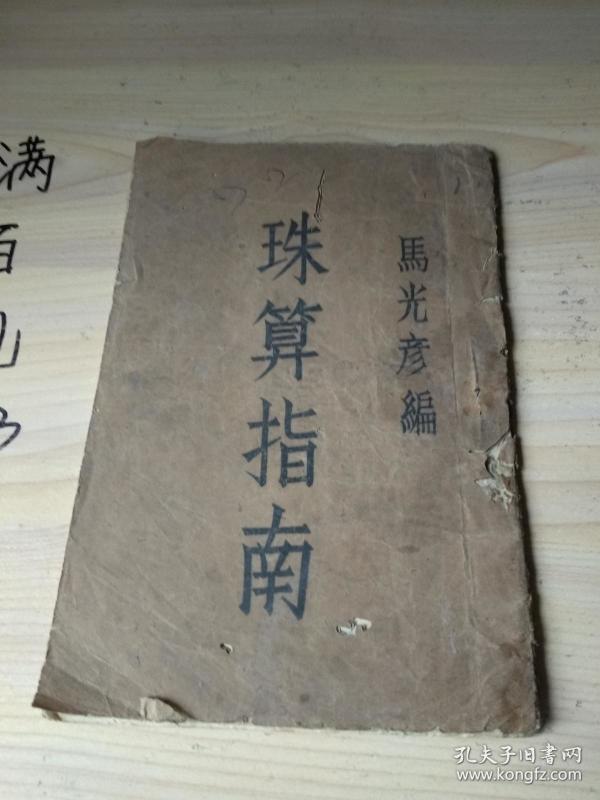 馬光彦編
珠算指南
满
百
孔夫子旧书网
www.kongfz.com